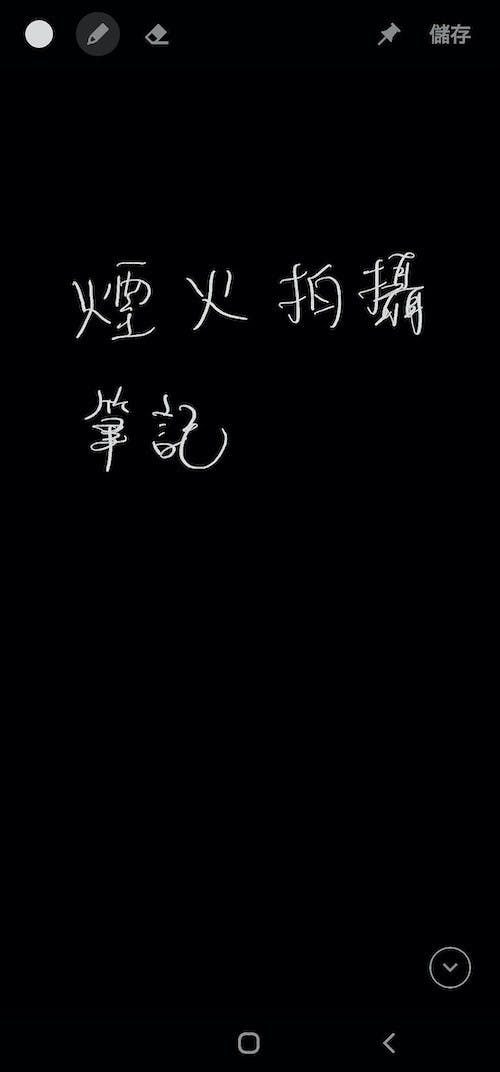 儲存
煙火拍攝
筆記